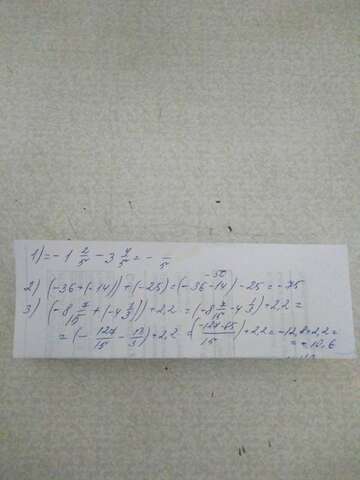 1) = - 1 2/5 - 3 4/5 = - /5
-50
2) (-36+(-14))+(-25)=(-36-14)-25=-75
3) (-8 7/15 + (-4 1/3)) + 2,2 = (-8 7/15 - 4 1/3) + 2,2 =
= (- 127/15 - 13/3) + 2,2 = (-127-65/15) + 2,2 = -12,8+2,2 =
= -10,6